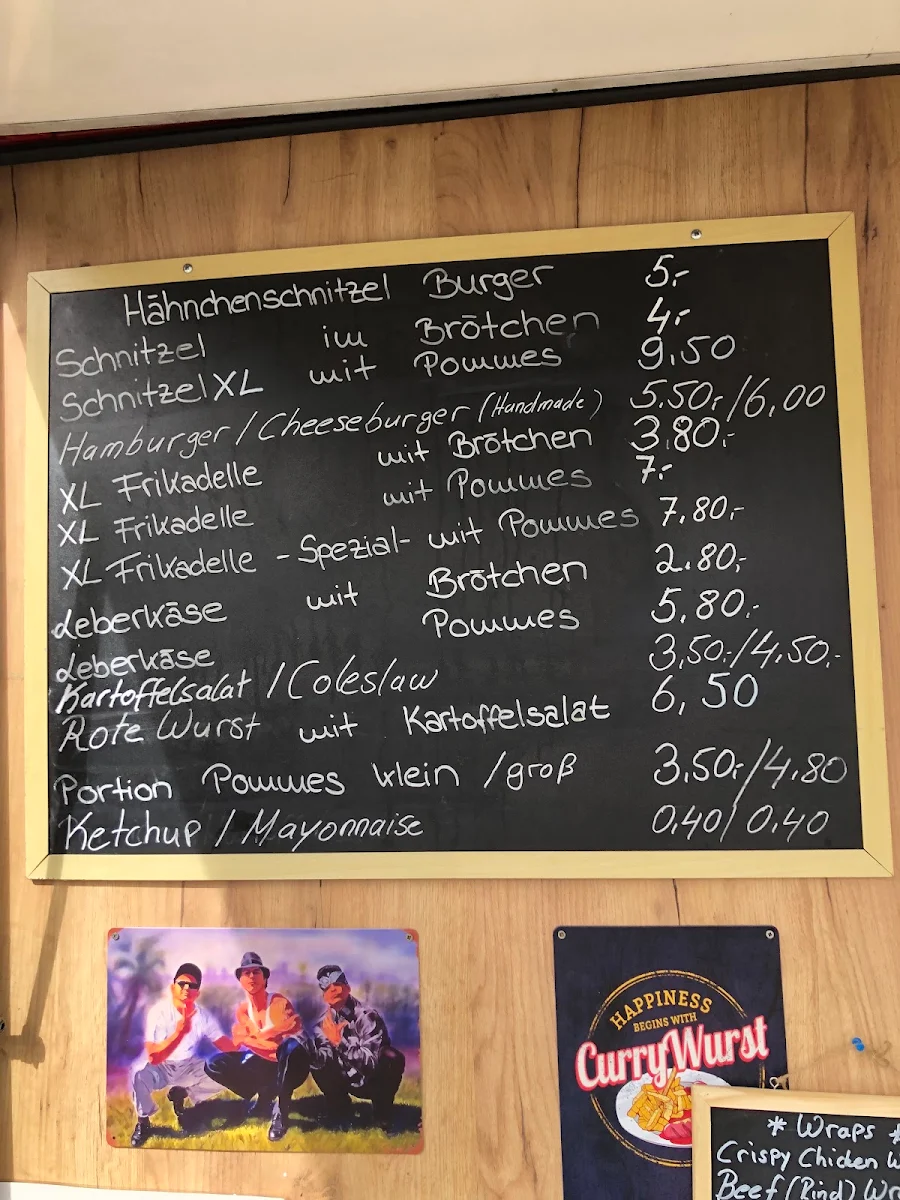 Hähnchenschnitzel Burger 5,-
Schnitzel im Brötchen 4,-
Schnitzel XL mit Pommes 9,50
Hamburger / Cheeseburger (Handmade) 5,50,-/6,00
XL Frikadelle mit Brötchen 3,80,-
XL Frikadelle mit Pommes 7,-
XL Frikadelle -Spezial- mit Pommes 7,80,-
Leberkäse mit Brötchen 2.80,-
Leberkäse Pommes 5,80,-
Kartoffelsalat / Coleslaw 3,50,-/4,50,-
Rote Wurst mit Kartoffelsalat 6,50
Portion Pommes klein / groß 3,50,-/4,80
Ketchup / Mayonnaise 0,40/ 0,40
HAPPINESS
BEGINS WITH
CurryWurst
* Wraps *
Crispy Chicken W
Beef (Rind) Wr